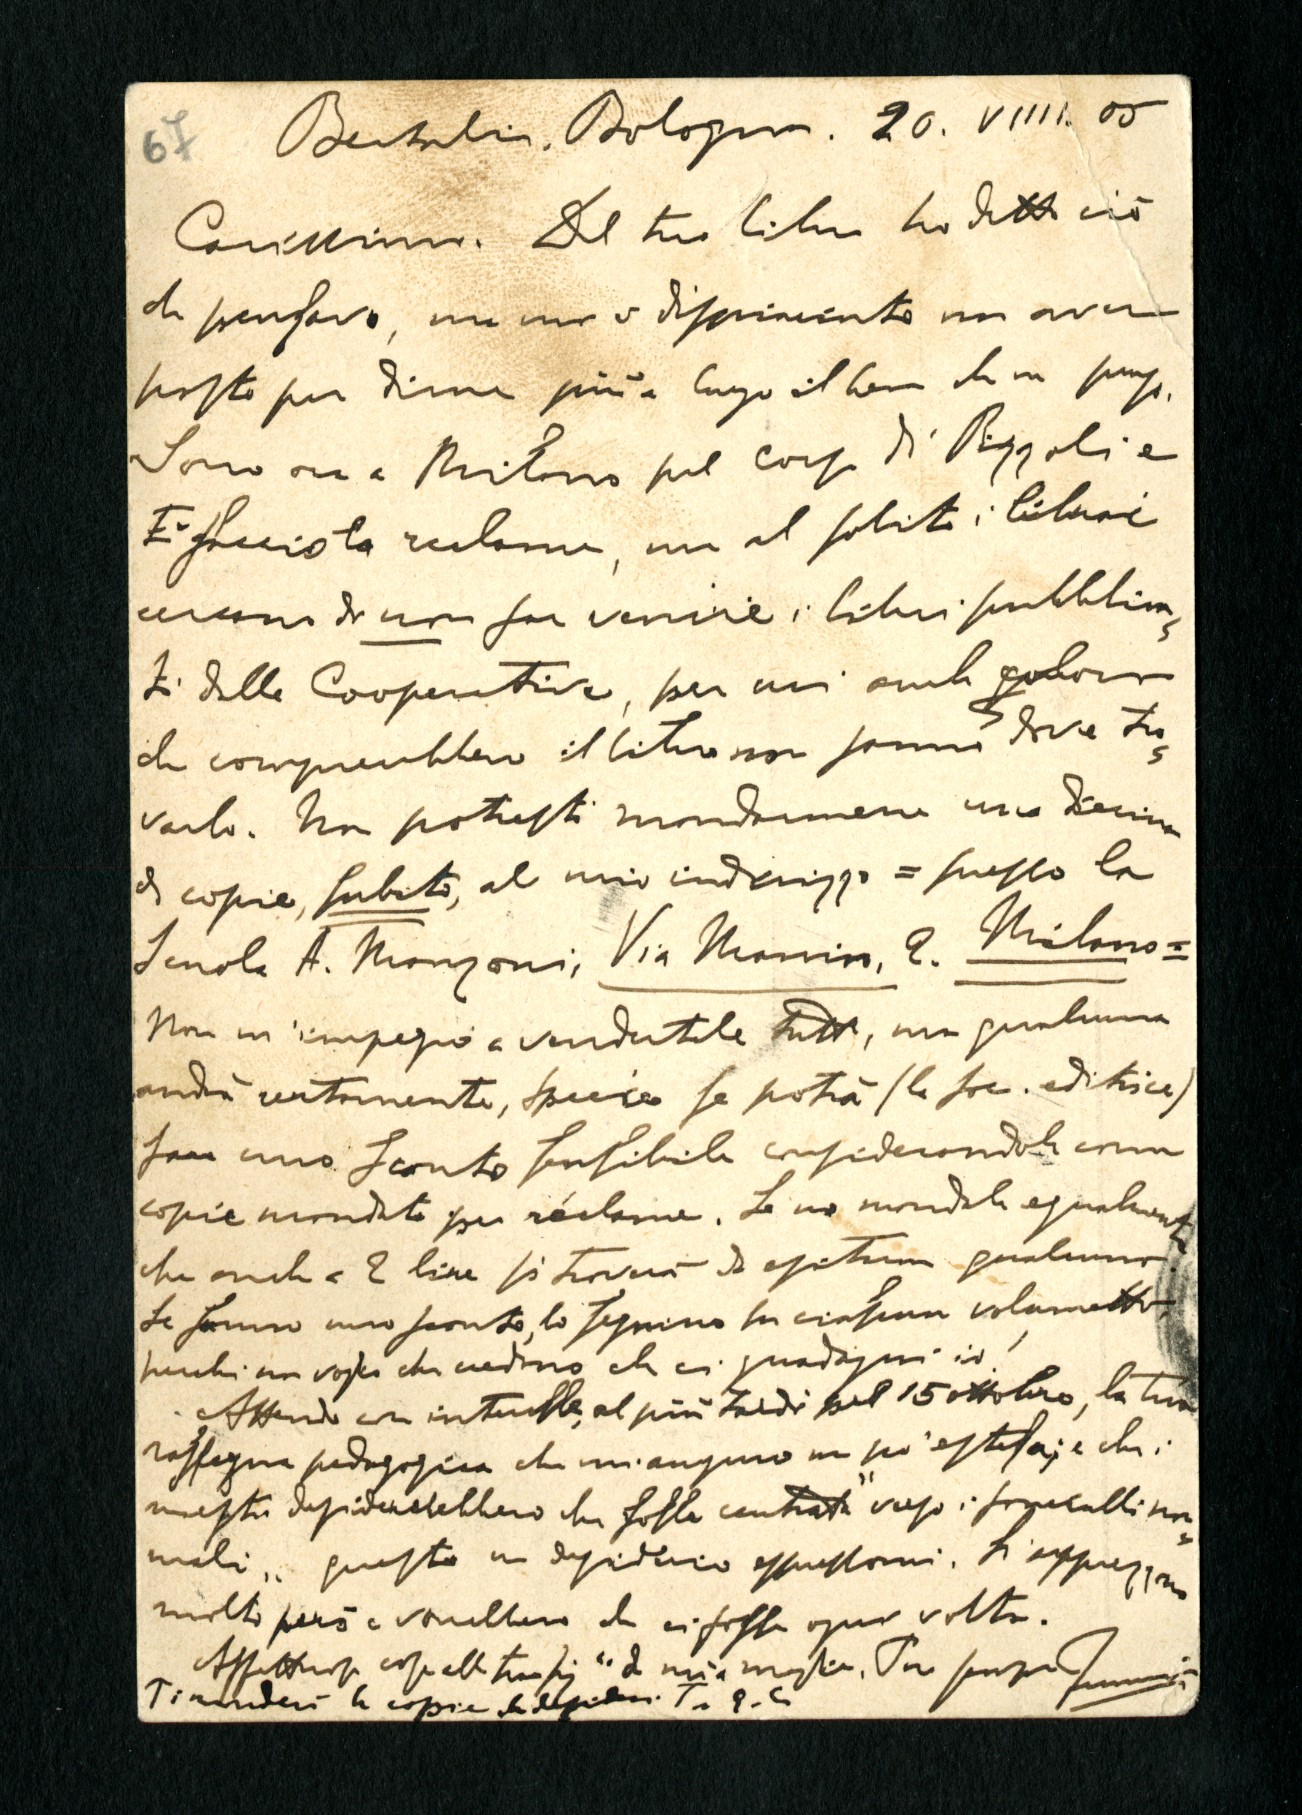 67
Bertalia. Bologna. 20. VIIII. 05
Carissimo. Del tuo libro ho detto ciò
che pensavo, ma mi è dispiaciuto non aver
posto per dirne più a lungo il bene che ne penso.
Sono ora a Milano pel corso di Pizzoli e
Ti faccio la reclame, ma al solito i librai
cercano di non far venire i libri pubblica=
ti dalle Cooperative, per cui anche coloro
che comprerebbero il libro non sanno dove tro=
varlo. Non potresti mandarmene una diecina
di copie, subito, al mio indirizzo = presso la
Scuola A. Manzoni, Via Manin, 2. Milano =
Non m'impegno a vendertele tutte, ma qualcuna
andrà certamente, specie se potrà (la soc. editrice)
fare uno sconto sensibile considerandole come
copie mandate per réclame. Se no mandale egualmente
che anche a 2 lire si troverà da esitarne qualcuno.
Se fanno uno sconto, lo segnino su ciascun volumetto,
perchè non voglio che credano che ci guadagni io!
Attendo con interesse, al più tardi pel 15 ottobre, la tua
rassegna pedagogica che mi auguro un po' estesa; e che i
maestri desidererebbero che fosse centrata " verso i fanciulli nor=
mali „ questo un desiderio espressomi. Ti apprezzano
molto però e vorrebbero che ci fosse ogni volta.
di mia moglie. Tuo
Ti manderò le copie che desideri. Tuo